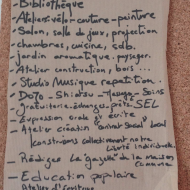 - Bibliothèque
- Ateliers vélo - couture - peinture
- Salon, salle de jeux, projection
- chambres, cuisine, sdb.
- jardin aromatique, paysager.
- Atelier construction, bois...
- Studio Musique repetition.
- Dojo - Shiatsu - - Soins
gratuiterie. échanges. prêts. SEL
- Expression orale & écrite
- Atelier création contrat Social Local
Construons collectivement notre
Liberté Individuelle
- Rédiger la gazette de la maison
Commune
- Education populaire
Atelier d'écriture